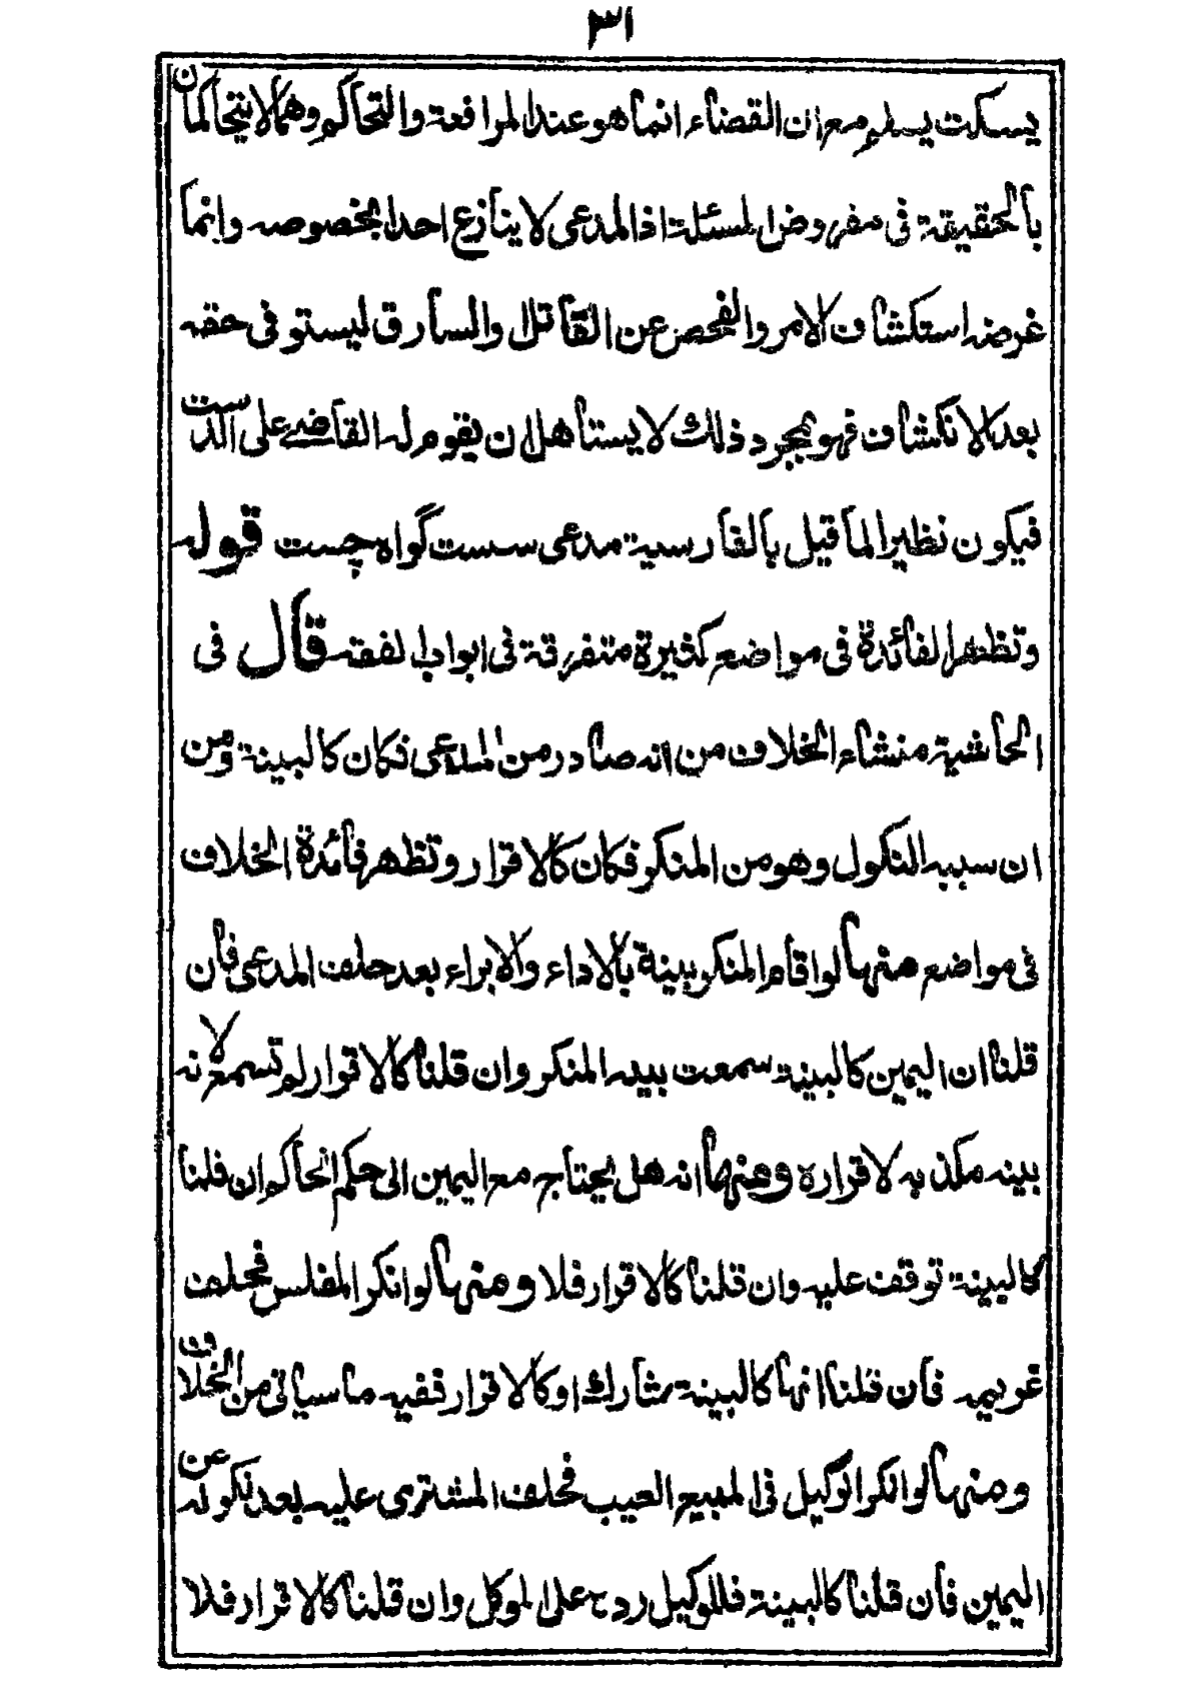 ٣١
يسكت يسلم مع ان القضاء انما هو عند المرافعة والتحاكم وهما لا يتحاكمان
بالحقيقة فى مفروض المسئلة اذ المدعى لا ينازع احدا بخصوصه وانما
غرضه استكشاف الامر والفحص عن القاتل والسارق ليستوفى حقه
بعد الانكشاف فهو بمجرد ذلك لا يستاهل ان يقوم له القاضے على الدست
فيكون نظيرا لما قيل بالفارسية مدعى سست گواه چست قوله
وتظهر الفائدة فى مواضع كثيرة متفرقة فى ابواب الفقه قال فى
الحاشية منشاء الخلاف من انه صادر من المدعى فكان كالبينة ومن
ان سببه النكول وهو من المنكر فكان كالاقرار وتظهر فائدة الخلاف
فى مواضع منها لو اقام المنكر بينة بالاداء والابراء بعد حلف المدعى فان
قلنا ان اليمين كالبينة سمعت بينه المنكر وان قلنا كالاقرار لم تسمع لانه
بينه مكذبه لاقراره ومنها انه هل يحتاج مع اليمين الى حكم الحاكم ان قلنا
كالبينة توقف عليه وان قلنا كالاقرار فلا ومنها لو انكر المفلس فحلف
غريمه فان قلنا انها كالبينة شارك او كالاقرار ففيه ما سياتى من الخلاف
ومنها لو انكر الوكيل فى المبيع العيب فحلف المشترى عليه بعد نكوله عن
اليمين فان قلنا كالبينة فللوكيل رده على الموكل وان قلنا كالاقرار فلا